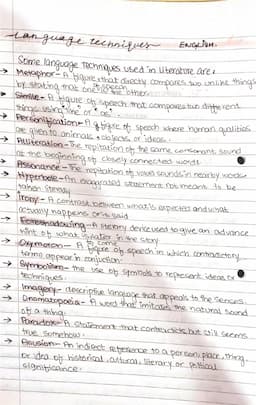 Language techniques English.
Some language techniques used in literature are:
→ Metaphor - A figure of speech that directly compares two unlike things
by stating that one is the other.
→ Simile - A figure of speech that compares two different
things using "like" or "as".
→ Personification - A figure of speech where human qualities
are given to animals, objects, or ideas.
→ Alliteration - The repitation of the same consonant sound
at the beginning of closely connected words
→ Assonance - The repitation of vowel sounds in nearby words
→ Hyperbole - An exaggerated statement not meant to be
taken literally
→ Irony - A contrast between what is expected and what
actually happens or is said
→ Foreshadowing - A literary device used to give an advance
hint of what is later in the story
→ Oxymoron - A figure of speech in which contradictory
terms appear in conjuction
→ Symbolism - the use of symbols to represent ideas or
techniques.
→ Imagery - descriptive language that appeals to the senses.
→ Onomatopoeia - A word that imitates the natural sound
of a thing.
→ Paradox - A statement that contradicts but still seems
true somehow.
→ Allusion - An indirect reference to a person, place, thing
or idea of historical, cultural, literary or political
significance.